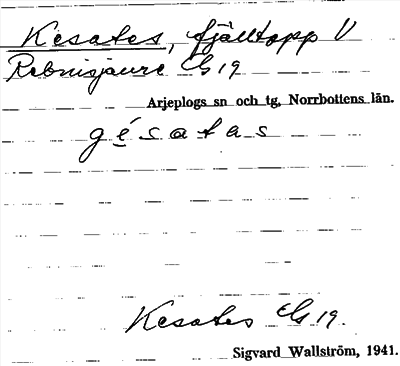 Kesates, fjälltopp V
Rebnisjaure EG 19
Arjeplogs sn och tg, Norrbottens län.
gésatas
Kesates EG 19.
Sigvard Wallström, 1941.